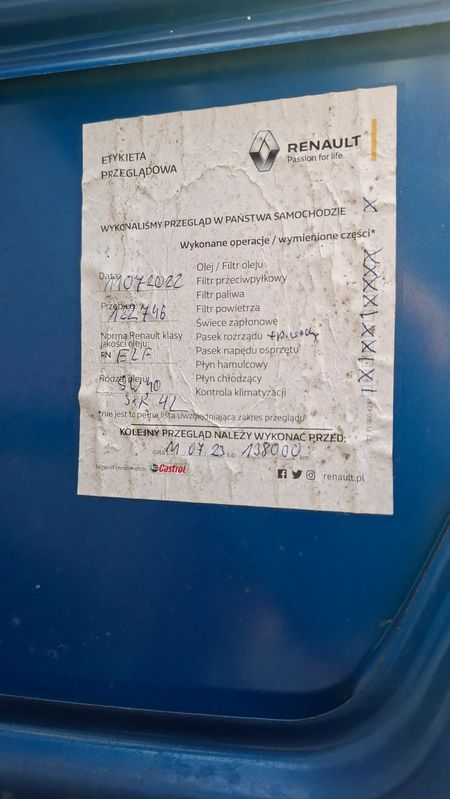 ETYKIETA
PRZEGLĄDOWA
RENAULT
Passion for life
WYKONALIŚMY PRZEGLĄD W PAŃSTWA SAMOCHODZIE X
Wykonane operacje / wymienione części*
Data: 11072022
Przebieg: 122746
Norma Renault klasy
jakości oleju:
RN ELF
Rodzaj oleju: 5W40
Olej / Filtr oleju
Filtr przeciwpyłkowy
Filtr paliwa
Filtr powietrza
Świece zapłonowe
Pasek rozrządu +p.wody
Pasek napędu osprzętu
Płyn hamulcowy
Płyn chłodzący
Kontrola klimatyzacji
*nie jest to pełna lista uwzględniająca zakres przeglądu
KOLEJNY PRZEGLĄD NALEŻY WYKONAĆ PRZED:
data 11.07.23 lub 138000 km
Renault recommends Castrol
renault.pl